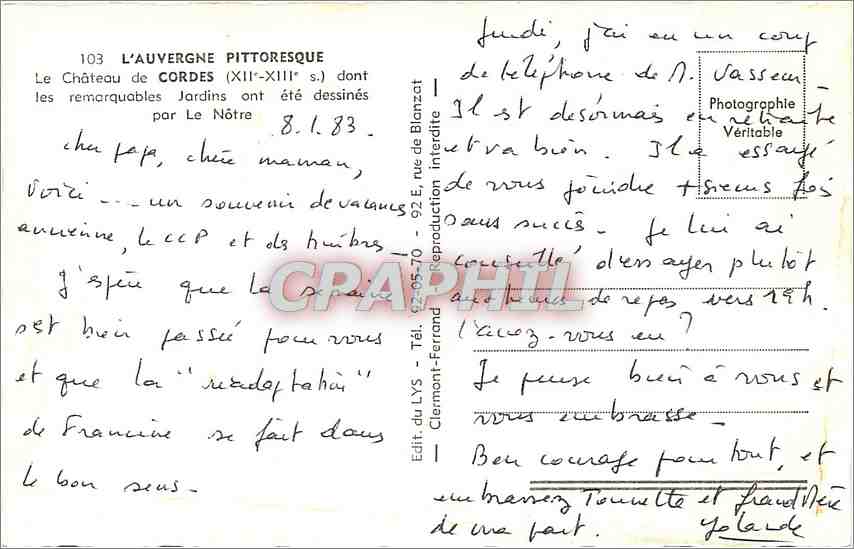 103 L'AUVERGNE PITTORESQUE
Le Château de CORDES (XIIe-XIIIe s.) dont
les remarquables Jardins ont été dessinés
par Le Nôtre
8.1.83.
cher papa, chère maman,
Voici --- un souvenir de vacances
ancienne, le CCP et des timbres -
J'espère que la semaine
s'est bien passée pour vous
et que la "réadaptation"
de Francine se fait dans
le bon sens -
Edit. du LYS - Tél. 92-05-70 - 92 E, rue de Blanzat
— Clermont-Ferrand — Reproduction interdite —
Photographie
Véritable
CPAPHIL
Jeudi, j'ai eu un coup
de téléphone de M. Vasseur -
Il est désormais en retraite
et va bien. Il a essayé
de vous joindre +sieurs fois
sans succès - Je lui ai
conseillé d'essayer plutôt
aux heures de repas vers 19h.
l'avez-vous eu ?
Je pense bien à vous et
vous embrasse -
Bon courage pour tout, et
embrassez Tounette et Grand Mère
de ma part. Yolande